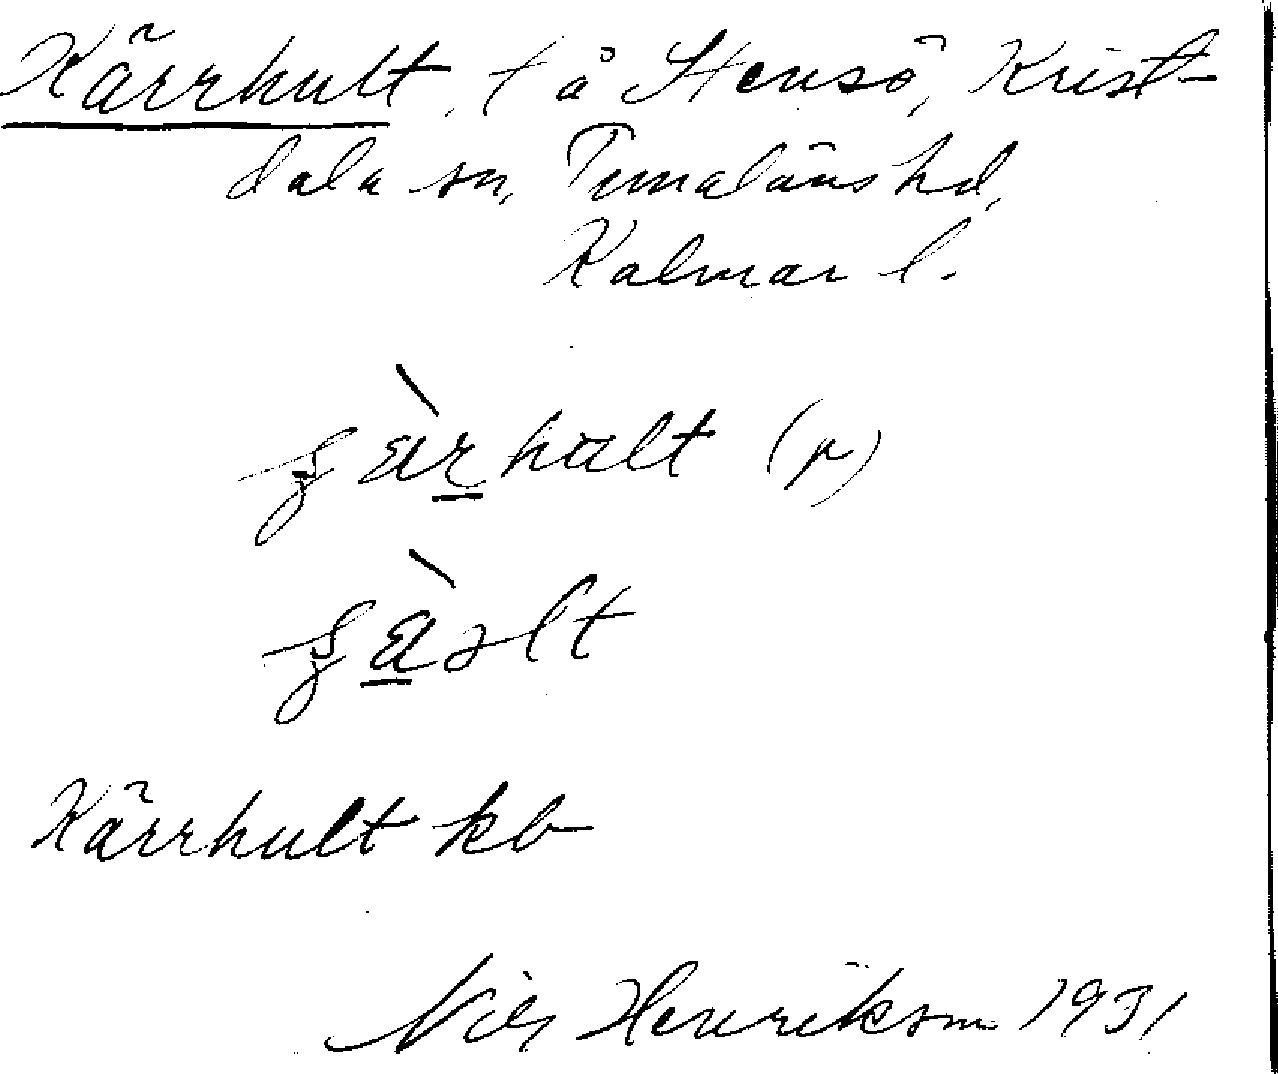 Kärrhult, t å Stensö, Krist-
dala sn, Tunaläns hd,
Kalmar l.
(r)
Kärrhult kb
Nils Henrikson 1931